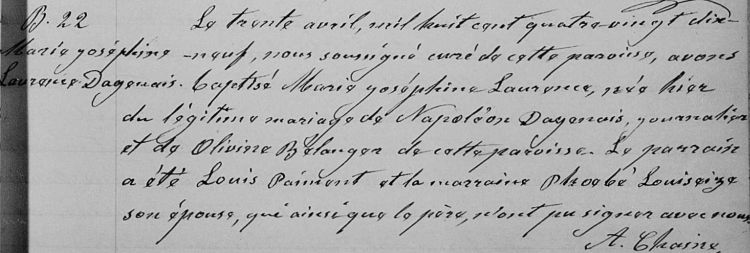 B. 22 Le trente avril, mil huit cent quatre-vingt dix-
Marie Joséphine -neuf, nous soussigné curé de cette paroisse, avons
Laurence Dagenais. baptisé Marie Joséphine Laurence, née hier
du légitime mariage de Napoléon Dagenais, journalier
et de Olivine Bélanger de cette paroisse. Le parrain
a été Louis Paiment et la marraine Phoebé Louiseize
son épouse, qui ainsi que le père, n'ont pu signer avec nous.
A. Chaine,